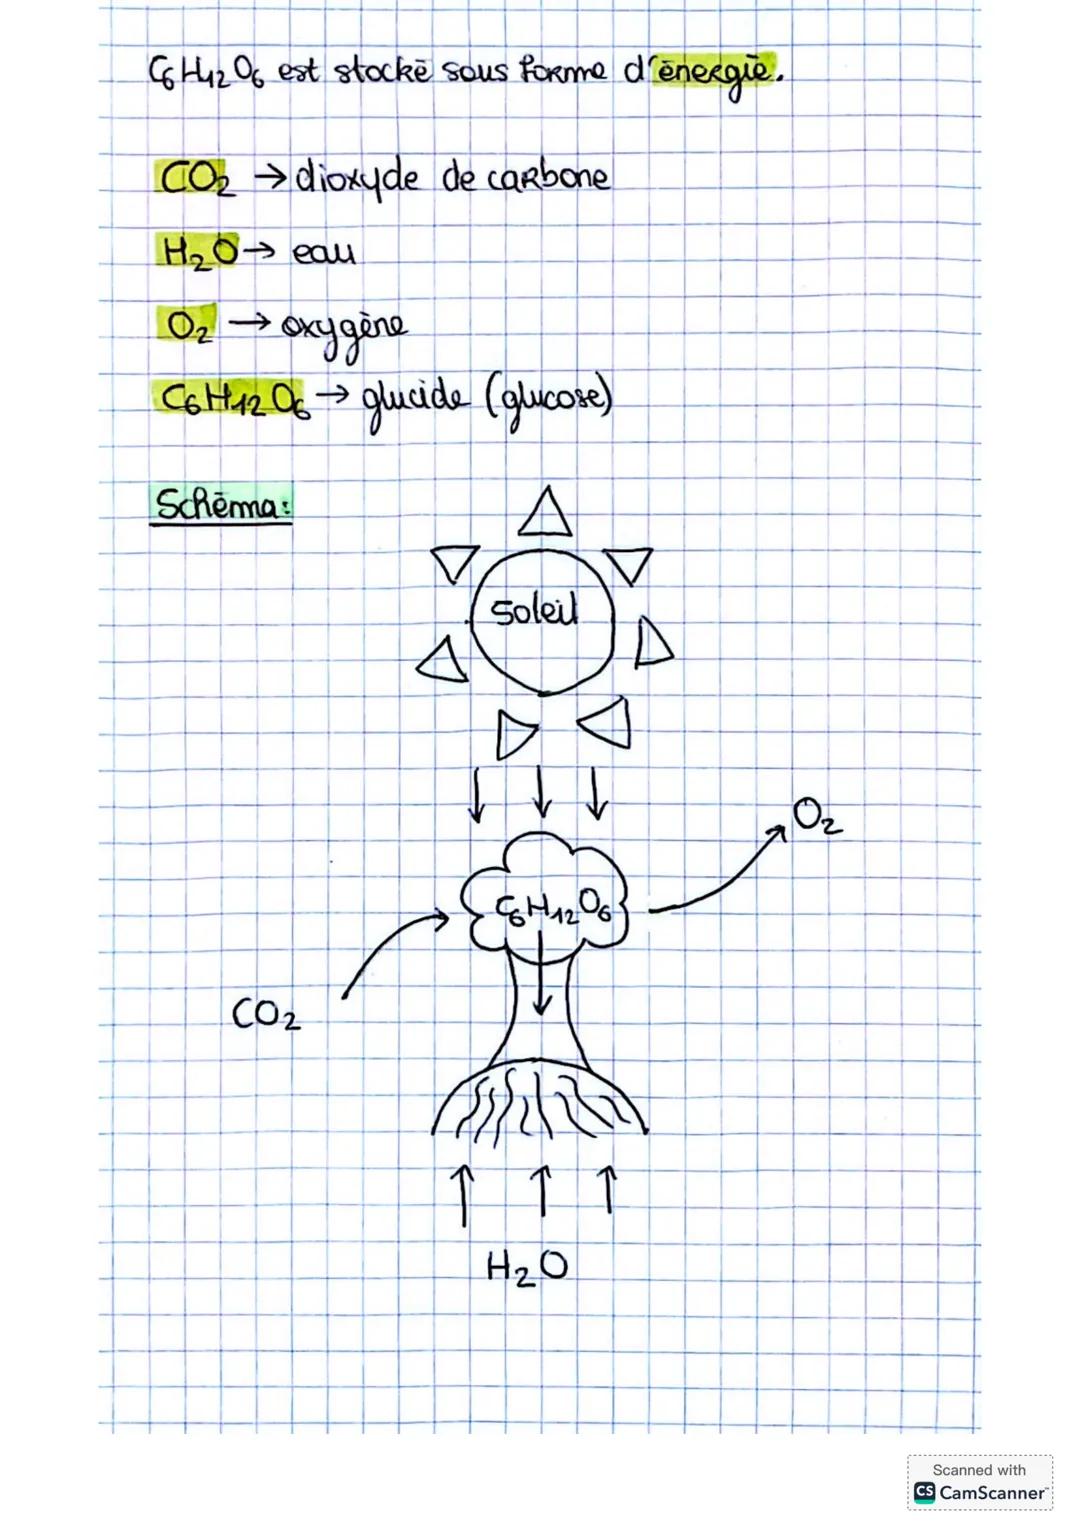 C₆H₁₂O₆ est stocké sous forme d'énergie.
CO₂ → dioxyde de carbone
H₂O → eau
O₂ → oxygène
C₆H₁₂O₆ → glucide (glucose)
Schéma:
soleil
O₂
C₆H₁₂O₆
CO₂
H₂O
Scanned with
CS CamScanner